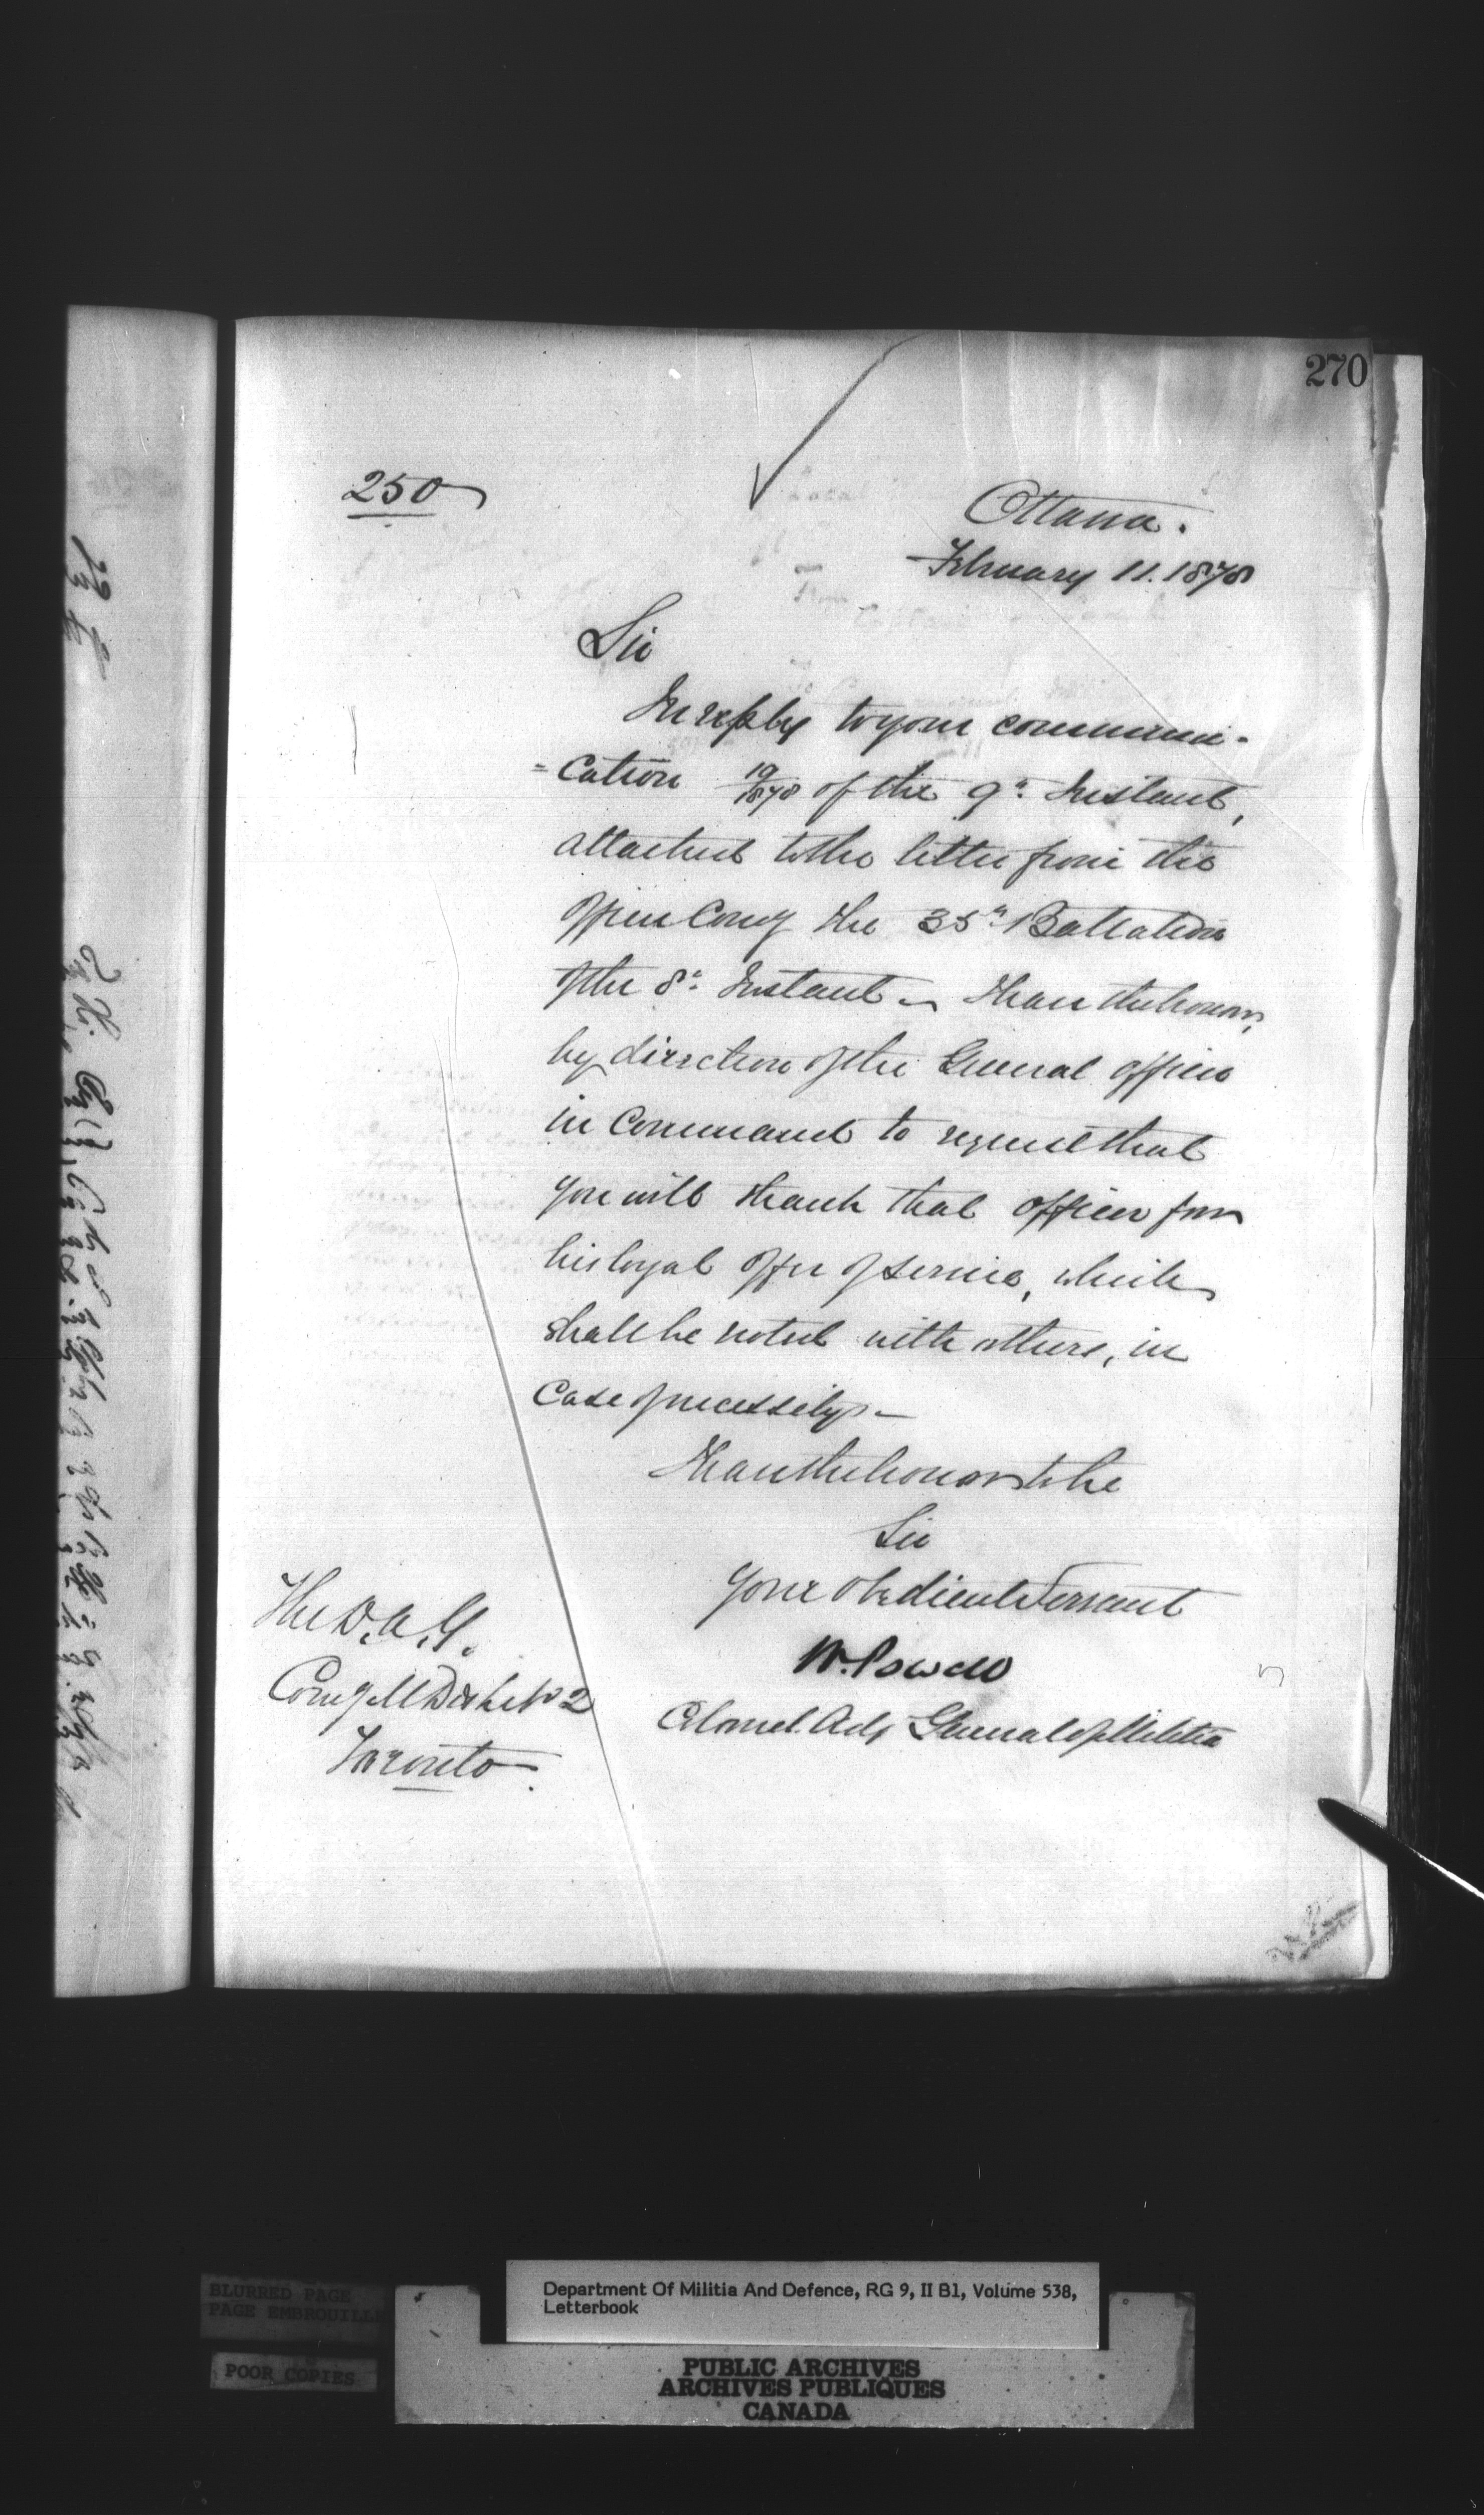 270
250
Ottawa.
February 11. 1878
Sir
In reply to your communi-
=cation 19/1878 of the 9th Instant,
attached to the letter from the
Officer Comg the 35th Battalion
of the 8th Instant – I have the honor,
by direction of the General Officer
in Command to request that
you will thank that officer for
his loyal offer of service, which
shall be noted with others, in
case of necessity –
I have the honor to be
Sir
Your obedient Servant
W. Powell
Colonel. Adjt General of Militia
The D.A.G.
Comg M District No 2
Toronto.
BLURRED PAGE
PAGE EMBROUILL
POOR COPIES
Department Of Militia And Defence, RG 9, II B1, Volume 538,
Letterbook
PUBLIC ARCHIVES
ARCHIVES PUBLIQUES
CANADA